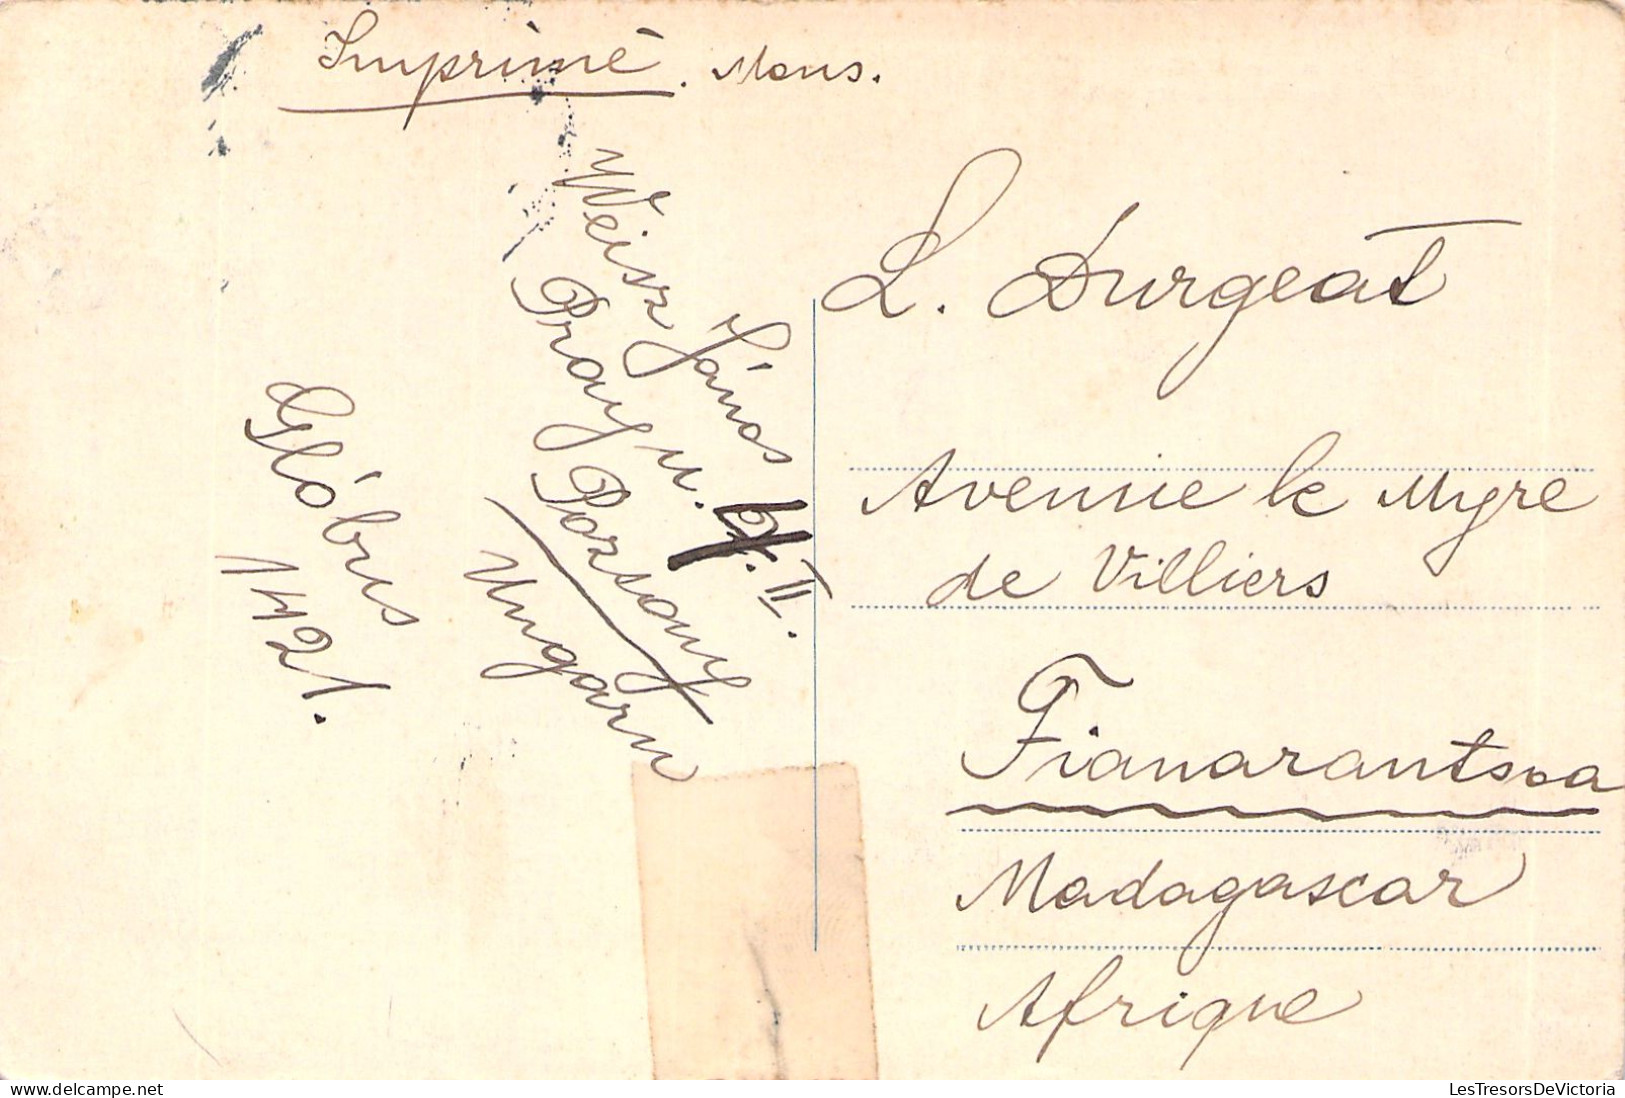 Imprimé. Mons.
L. Durgeat
Avenue le Myre
de Villiers
Fianarantsoa
Madagascar
Afrique
Weisz János
Pray u. II.
Pozsony
Ungarn
Glóbus
1421.
delcampe.net
LesTresorsDeVictoria